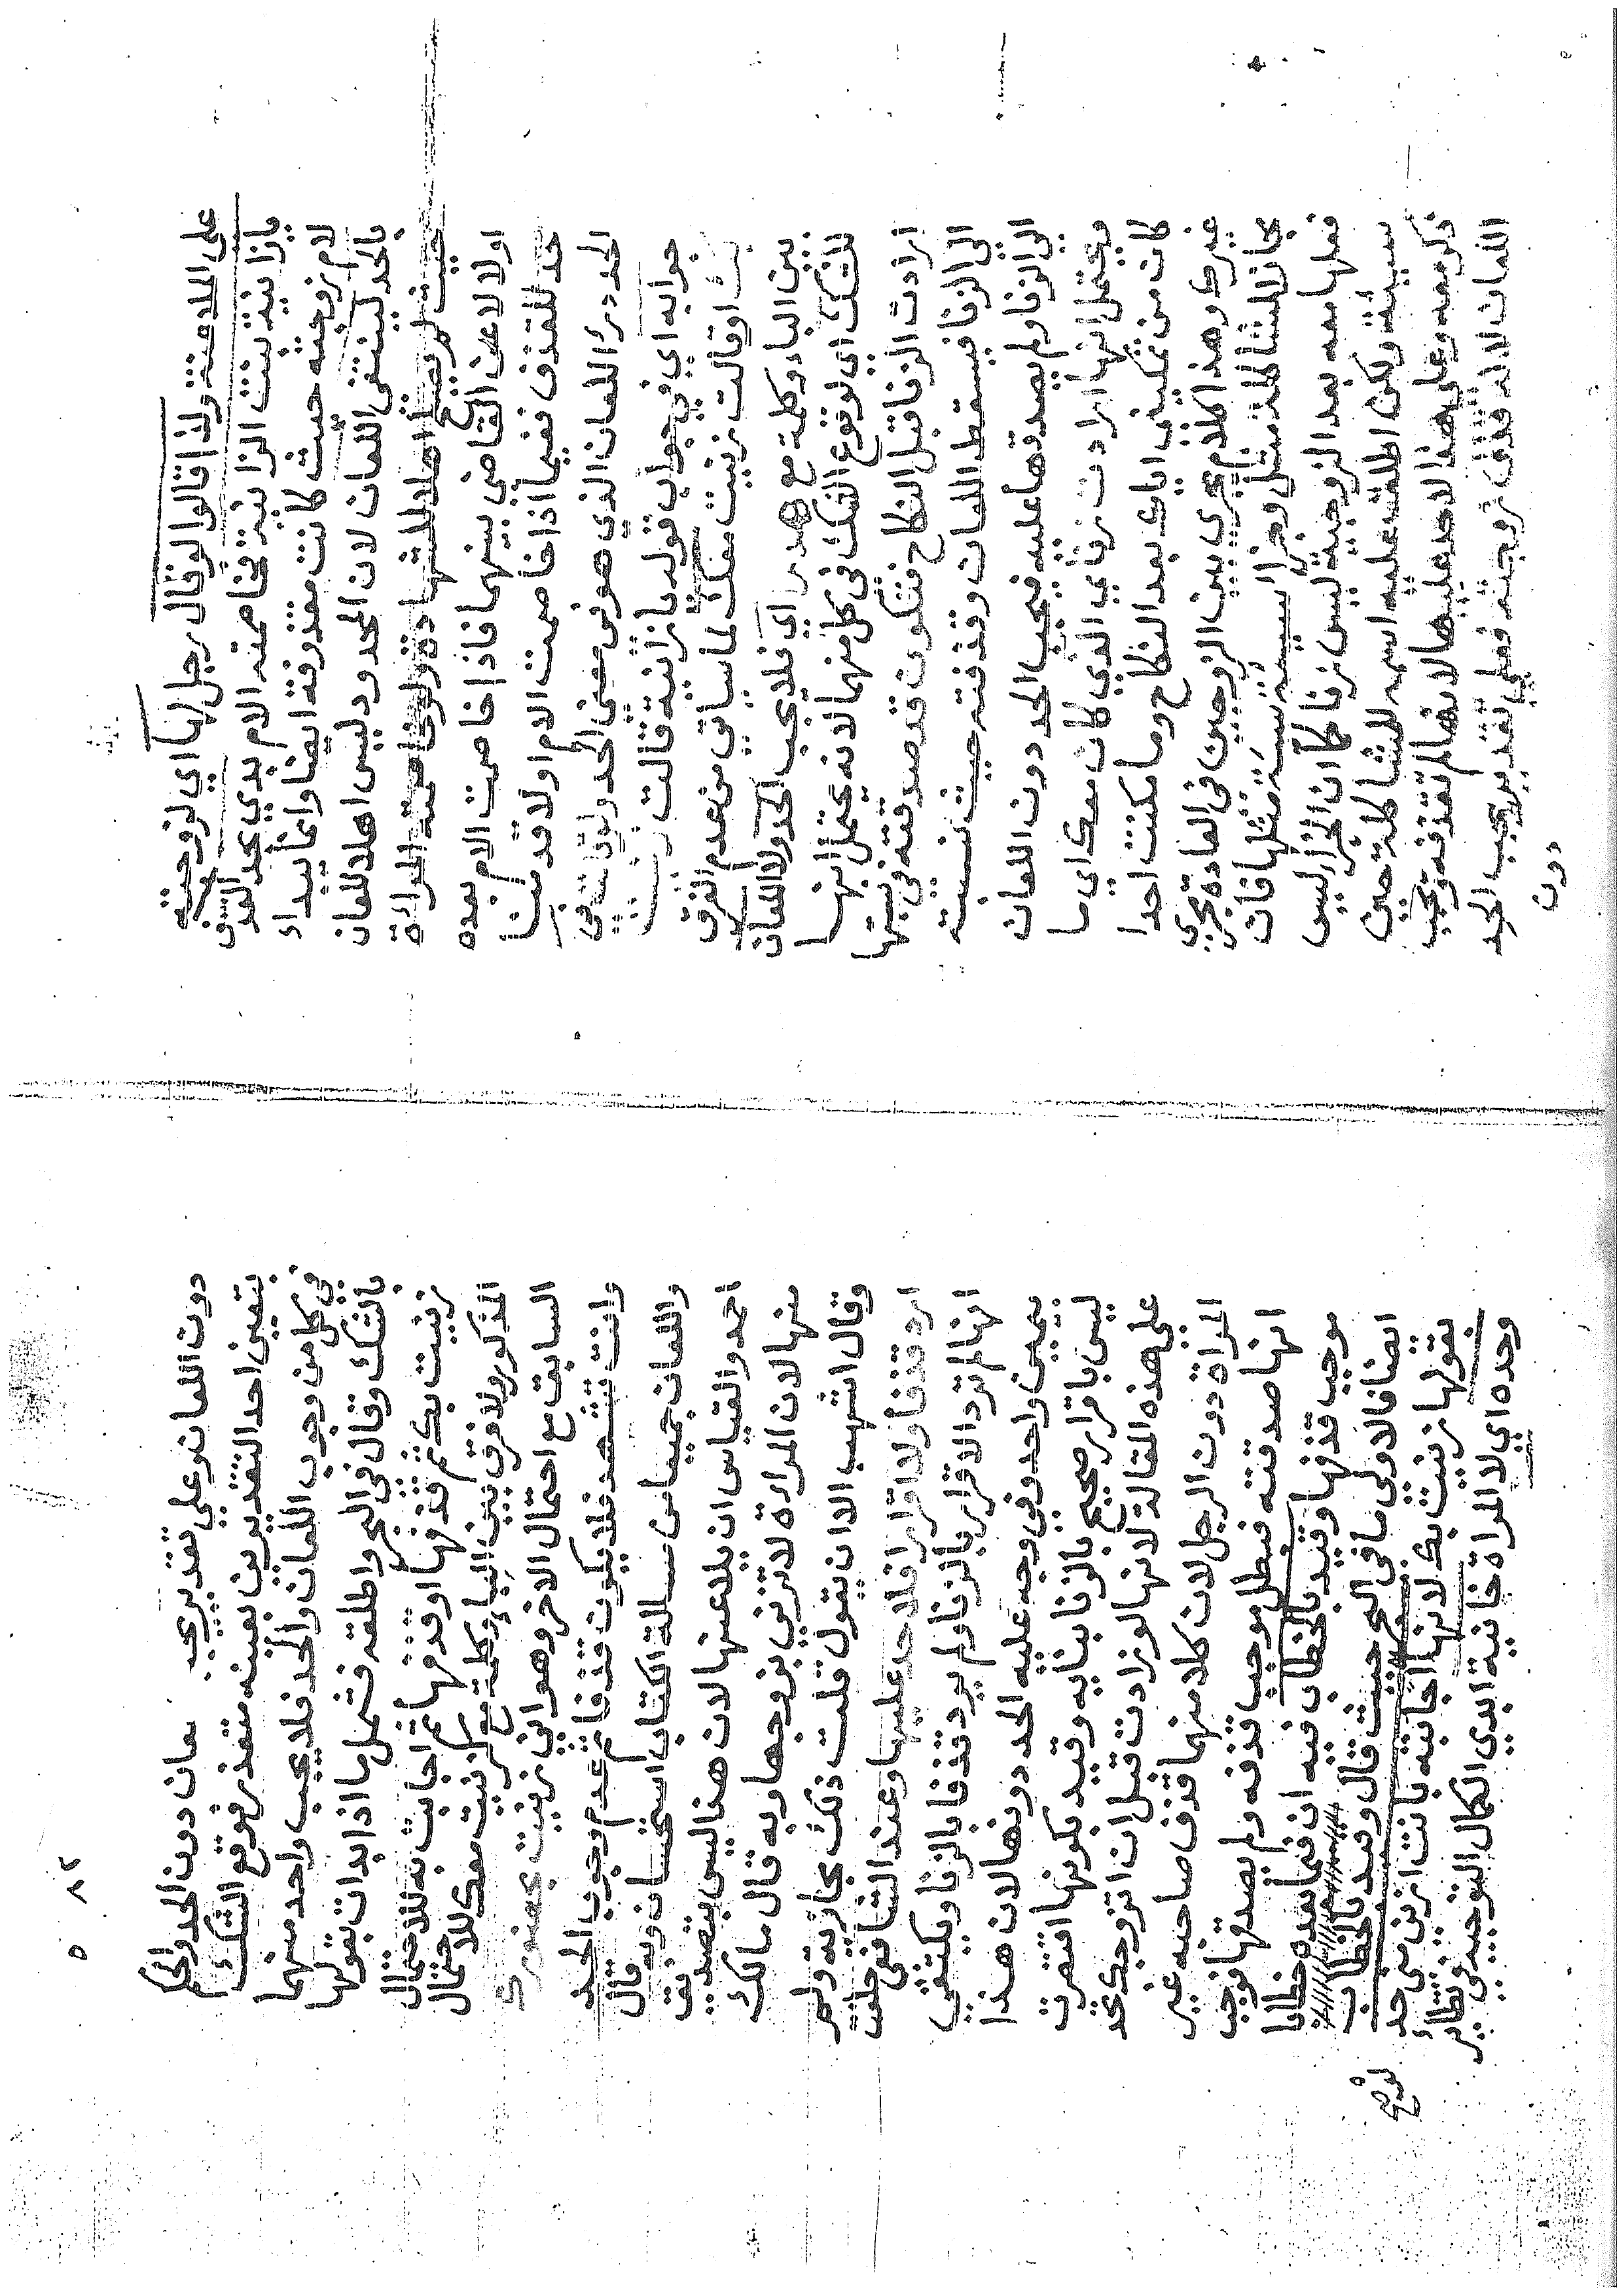 على الملاعنة ولذا قالوا لو قال رجل لها اي لزوجته
يا زانية بنت الزانية تخاصمته الام بدي بحد القذف
لام زوجته حيث كانت مقذوفة ايضا وانما يبداء
بالحد لينتفي اللعان لان المحدود ليس اهلا للعان
حيث لم يبق اهلا للشهادة ولو خاصمته المراة
اولا لاعن القاضي بينهما فاذا خاصمت الام بعده
حد للقذف نفيما اذا خاصمت الام اولا قدمنا
الحد درء اللعان الذي هو في معنى الحد ولو قالت في
جوابه اي في جواب قوله يا زانية قالت زنيت
بك او قالت زنيت معك لما سياتي من عدم الفرق
بين الباء وكلمة مع هدر اي فلا يجب الحد ولا اللعان
للشك اي لوقوع الشك في كل منهما لانه يحتمل انها
ارادت الزنا قبل النكاح فتكون قد صدقته في نسبتها
الى الزنا فيسقط اللعان وقذفته حيث نسبته
الى الزنا ولم يصدقها عليه فيجب الحد دون اللعان
ويحتمل انها ارادت زناي الذي كان معك اي ما
كان من تمكيني اياك بعد النكاح وما مكنت احدا
غيرك وهذا كلام يجري بين الزوجين في العادة تجري
مجاز المشاكلة مثل وجزآ سيئة سيئة مثلها فان
فعلها معه بعد الزوجية ليس زنا كما ان الجزآ ليس
سيئة ولكن اطلقت عليه اسمه للمشاكلة حين
ذكر معه وعلى هذا لا حد عليها لانها لم تقذفه ويجب
اللعان لانه قذف زوجته فعلى تقدير يجب الحد
دون
٨٢
دون اللعان وعلى تقدير يجب اللعان دون الحد والحكم
بتعيين احد التقديرين بعينه متعذر فوقع الشك
في كل من وجوب اللعان والحد فلا يجب واحد منهما
بالشك وقال في البحر واطلقه فشمل ما اذا بدات بقولها
زنيت بك ثم قذفها او قذفها ثم اجابت به للاحتمال
المذكور ولا فرق بين الباء وكلمة مع كزنيت معك للاحتمال
السابق مع احتمال الاخر وهو اني زنيت بحضورك
وانت تشهد فلا يكون قذفا ثم عدم وجوب الحد
واللعان جميعا في مسالة الكتاب استحسان وبه قال
احمد والقياس ان يلاعنها لان هذا ليس بتصديق
منها لان المراءة لا تزني بزوجها وبه قال مالك
وقال اشهب الا ان يقول قلت ذلك مجازبة ولم
ارد قذفا ولا اقرارا فلا حد عليها وعند الشافعي حلف
انها لم ترد الاقرار بالزنا ولم يرد قذفا بالزنا ويكتفي
بيمين واحد وفي وجه عليه الحد دونها لان هذا
ليس باقرار صحيح بالزنا بنايه وقيد بكونها اقتصرت
على هذه المقالة لانها لو زادت قبل ان اتزوجك تحد
المراة دون الرجل لان كلا منهما قذف صاحبه غير
انها صدقته فبطل موجب قذفه ولم يصدقها فوجب
موجب قذفها وقيد بالخطاب فيه ان فيما بعده خطابا
ايضا فالاولى ما في البحر حيث قال وقيد بالخطاب
بقولها زنيت بك لانها اجابته بانت ازنى مني حد
وحده اي لا المراة خانية ابدى الكمال التوجيه في نظائر